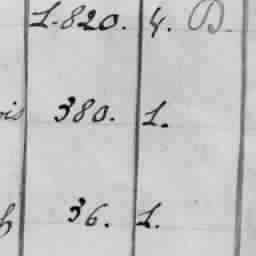 1.820. 4. D.
ois 380. 1.
36. 1.